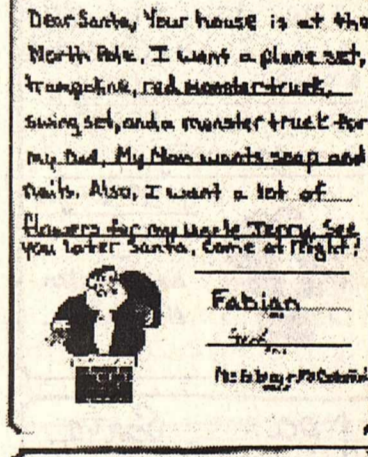 Dear Santa, Your house is at the
North Pole. I want a plane set,
trampoline, red monster truck,
swing set, and a monster truck for
my Dad. My Mom wants soap and
nails. Also, I want a lot of
flowers for my uncle Terry. See
you later Santa, come at night!
Fabian